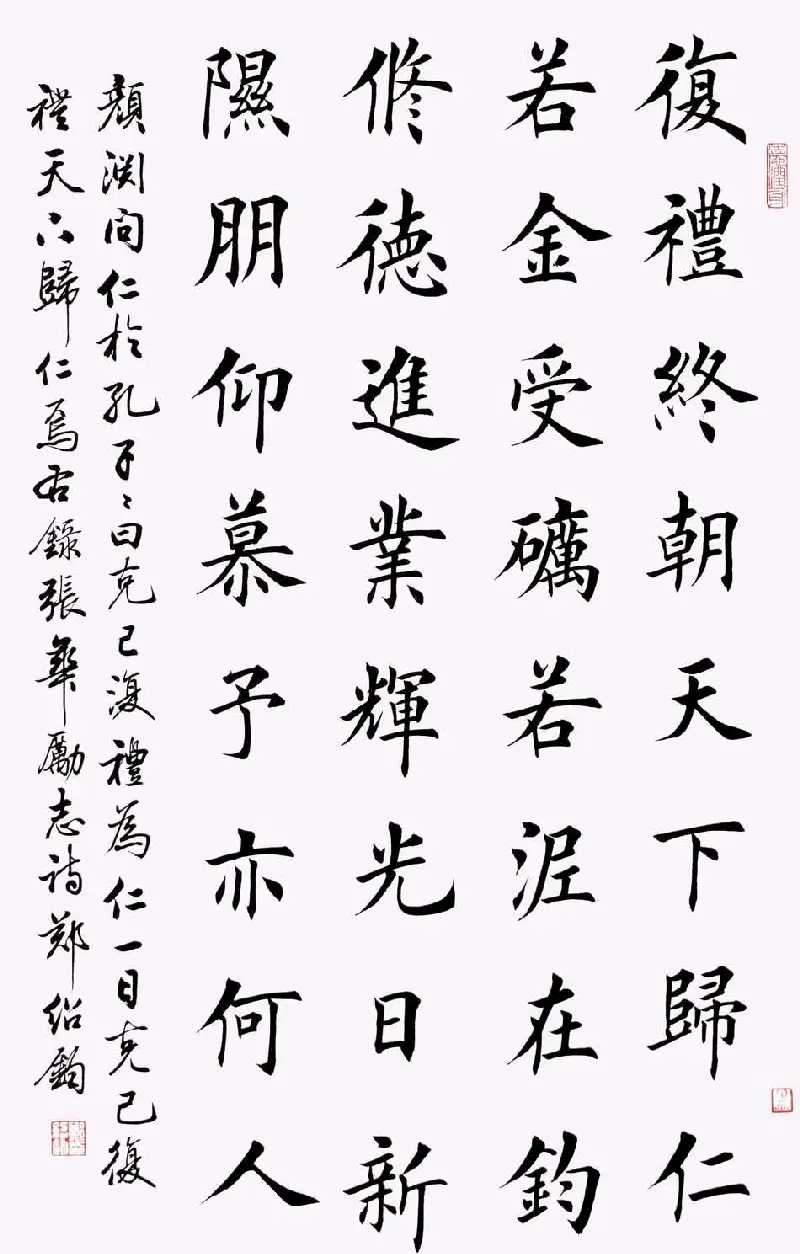 復禮終朝天下歸仁
若金受礪若泥在鈞
修德進業輝光日新
隰朋仰慕予亦何人
顏淵問仁於孔子〻曰克己復禮為仁一日克己復
禮天下歸仁焉右錄張華勵志詩鄭紹鈞